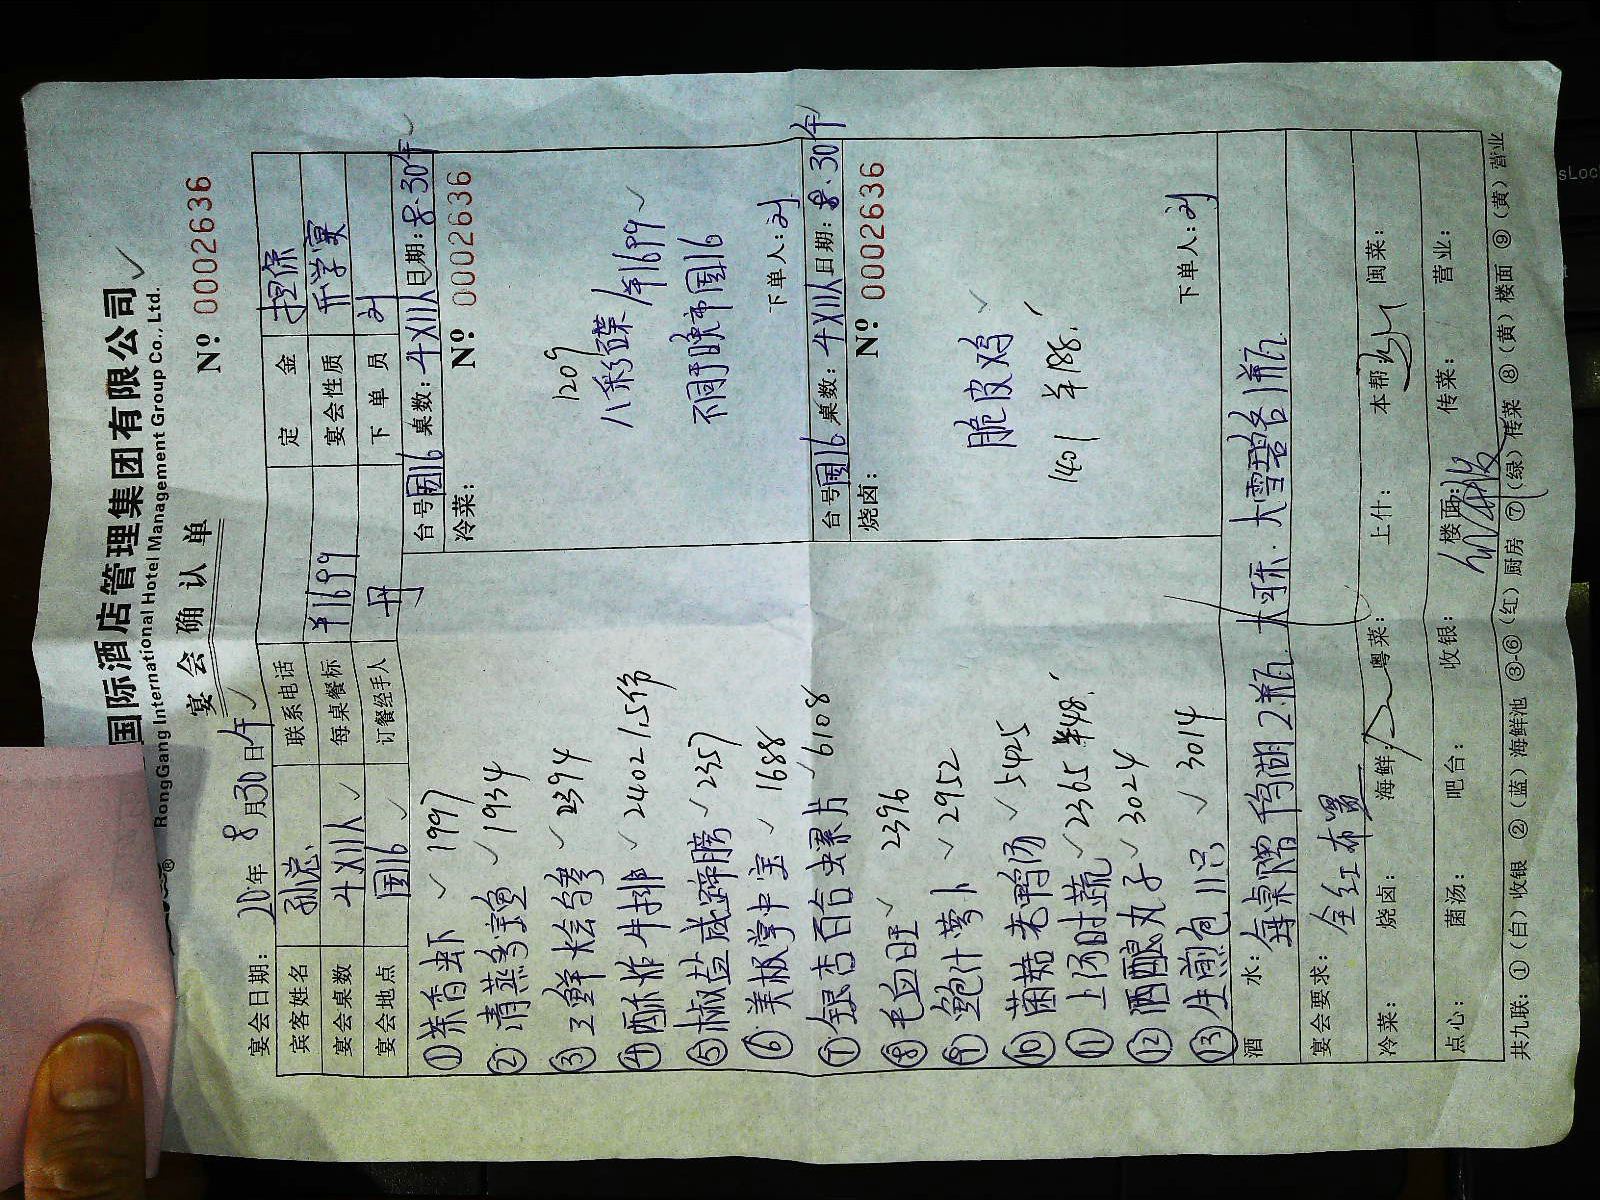 国际酒店管理集团有限公司
RongGang International Hotel Management Group Co., Ltd.
宴会确认单
Nº 0002636
宴会日期: 20 年 8 月 30 日 午
宾客姓名 孙总 联系电话 定金 担保
宴会桌数 4×11人 每桌餐标 ¥1699 宴会性质 升学宴
宴会地点 国16 订餐经手人 丹 下单员 刘
①茶香虾 1997
②清蒸 1934
③三鲜烩 2394
④酥炸牛排 2402 1.5份
⑤椒盐咸蹄膀 2357
⑥美极掌中宝 1688
⑦银杏百合螺片 6108
⑧毛血旺 2396
⑨鲍汁萝卜 2952
⑩菌菇老鸭汤 5425
⑪上汤时蔬 2365 ¥48.
⑫酒酿丸子 3024
⑬生煎包 11只 3014
台号国16 桌数: 4×11人 日期: 8.30午
冷菜: Nº 0002636
1209
八彩碟/¥1699
不同于晚市国16
下单人: 刘
台号国16 桌数: 4×11人 日期: 8.30午
烧卤: Nº 0002636
脆皮鸡
1401 ¥188.
下单人: 刘
酒水: 每桌赠千岛湖2瓶.大可乐.大雪碧各1瓶
宴会要求: 全红布置
冷菜: 烧卤: 海鲜: 粤菜: 上什: 本帮: 闽菜:
点心: 菌汤: 吧台: 收银: 楼面: 传菜: 营业:
共九联: ①(白)收银 ②(蓝)海鲜池 ③-⑥(红)厨房 ⑦(绿)传菜 ⑧(黄)楼面 ⑨(黄)营业